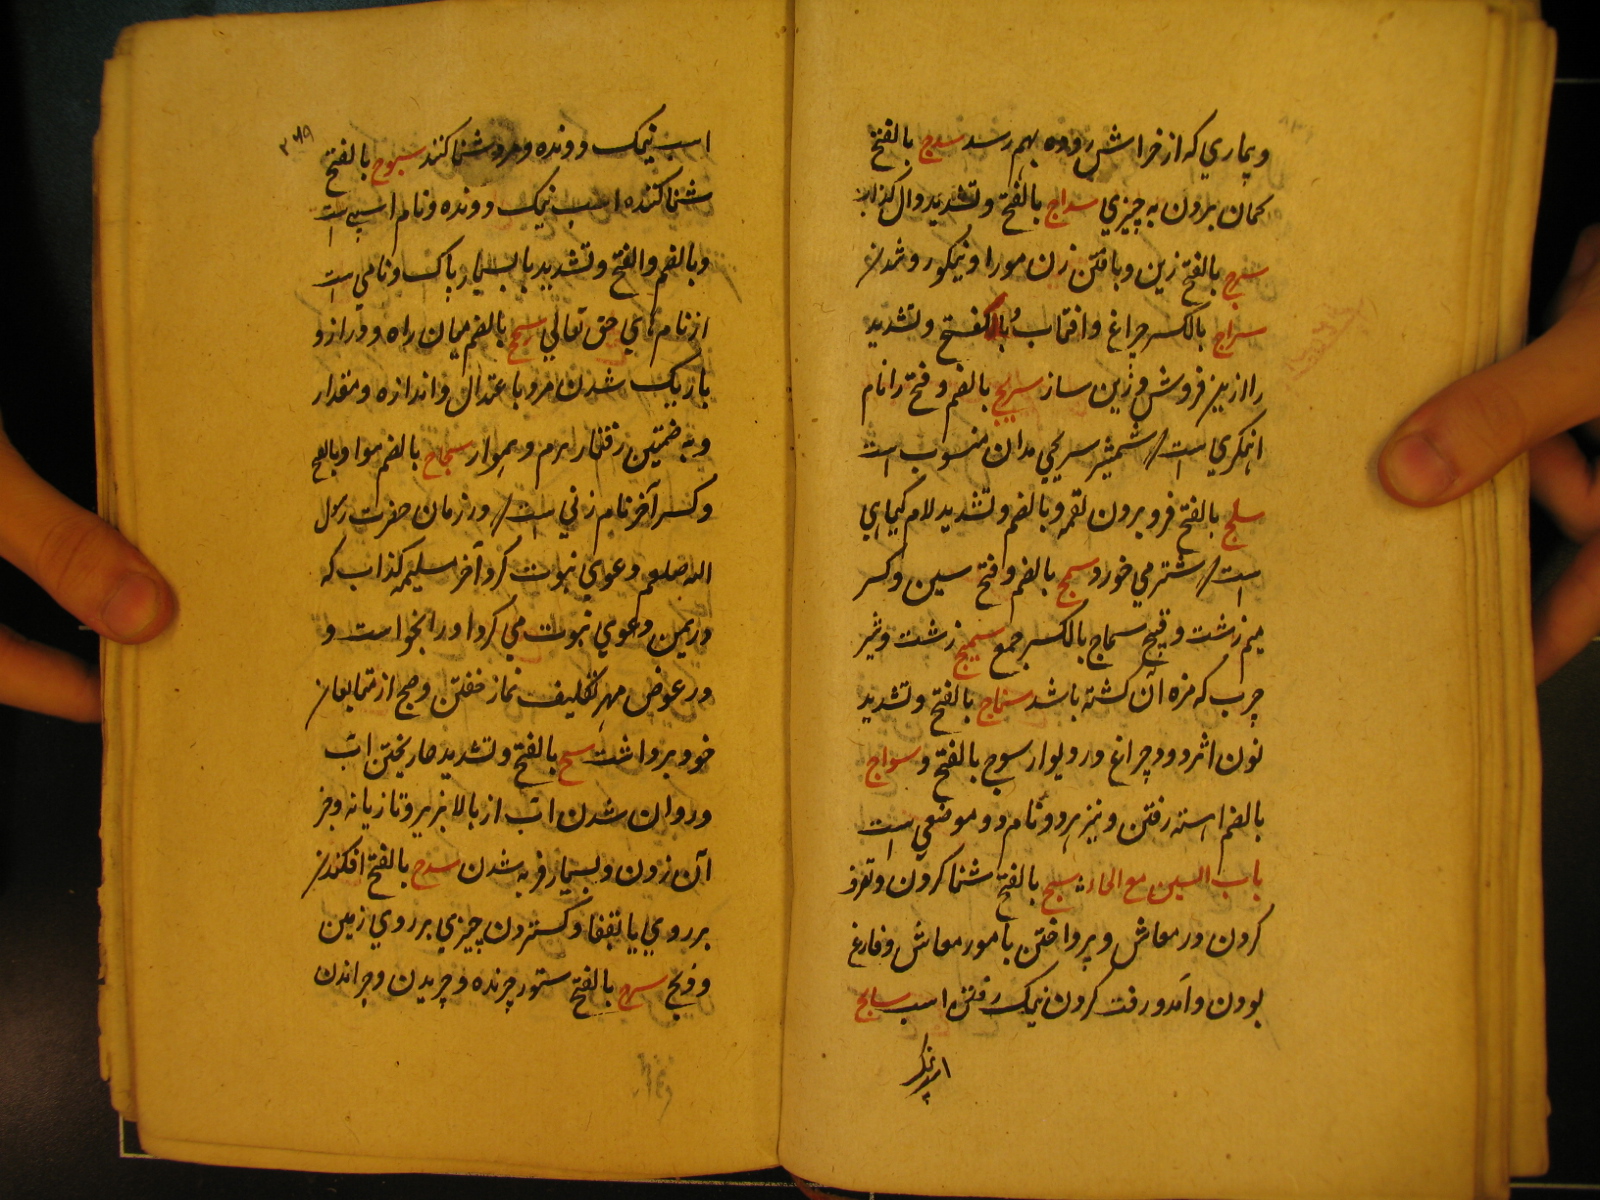 وبیماری که از خراش روده بهم رسد سدج بالفتح
کمان بردن به چیزی سداج بالفتح وتشدید دال کذاب
سرج بالفتح زین وبافتن زن مورا ونیکو رو شد ن
سراج بالکسر چراغ وافتاب و بالفتح وتشدید
را از یز فروش و زین ساز سریج بالضم وفتح را نام
اهنکری است که شمشیر سریجی بدان منسوب است
سلج بالفتح فرو بردن لقمه وبالضم وتشدید لام کیاهی
است که شتر می خورد سمج بالضم وفتح سین وکسر
میم زشت وقبیح سماج بالکسر جمع سمیج زشت وشیر
چرب که مزه آن کشته باشد سناج بالفتح وتشدید
نون اثر دود چراغ در دیوار سوج بالفتح و سواج
بالضم اسسته رفتن ونیز هر دو نام دو موضعی است
باب السین مع الحاء سبح بالفتح شنا کردن وتصرف
کردن در معاش وپرداختن بامور معاش وفارغ
بودن وآمد ورفت کردن نیک رفتن اسب سابح
اسپ نیک
۳۶۹
اسب نیک دونده ومرد شنا کننده سبوح بالفتح
شنا کننده اسب نیک دونده ونام اسپی است
وبالضم والفتح وتشدید با بسیار پاک ونامی است
از نام های حق تعالی سجح بالضم میان راه ودراز و
باریک شدن امر وباعتدال واندازه ومقدار
وبه ضمتین رفتار نرم وهموار سجاح بالضم هوا وبالفتح
وکسر آخر نام زنی است که در زمان حضرت رسول
الله صلعم دعوی نبوت کرد آخر مسلیمه کذاب که
در یمن دعوی نبوت می کرد اورا بخواست و
در عوض مهر تکلیف نماز خفتن وصبح از متابعان
خود برداشت سح بالفتح وتشدید حا ریختن اب
وروان شدن اب از بالا بزیر وتازیانه وجز
آن زدن وبسیار فربه شدن سدح بالفتح افکندن
بر روی یا بقفا وکستردن چیزی بر روی زمین
وذبح سرح بالفتح ستور چرنده وچریدن وچراندن